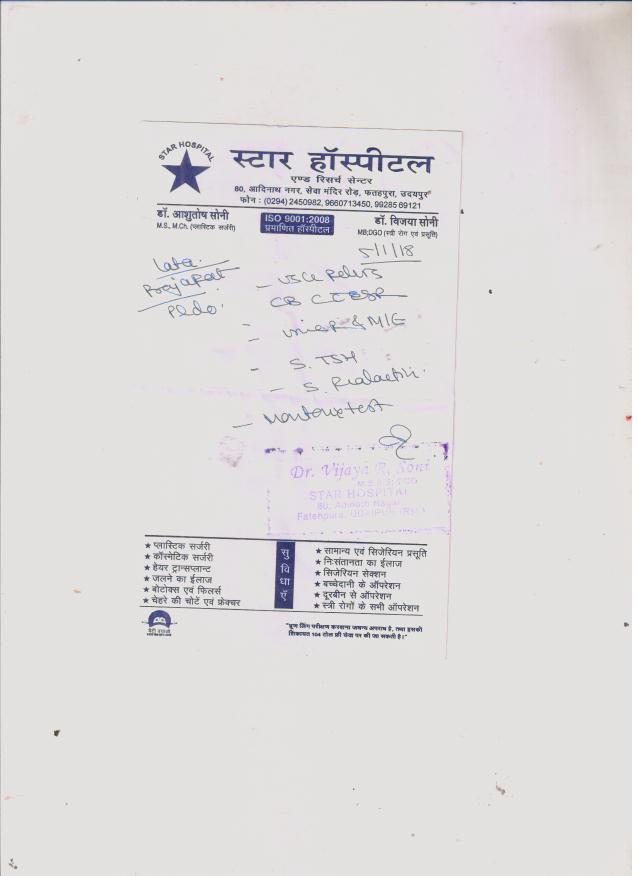 STAR HOSPITAL
स्टार हॉस्पीटल
एण्ड रिसर्च सेन्टर
60, आदिनाथ नगर, सेवा मंदिर रोड, फतहपुरा, उदयपुर
फोन : (0294) 2450982, 9660713450, 99285 69121
डॉ. आशुतोष सोनी
M.S., M.Ch. (प्लास्टिक सर्जरी)
ISO 9001:2008
प्रमाणित हॉस्पीटल
डॉ. विजया सोनी
MB;DGO (स्त्री रोग एवं प्रसूति)
5/1/18
Lata
- USG Pelvis
CB C ESR
- Urine R & M/E
- S. TSH
- S. Prolactin.
- Montoux test
Dr. Vijaya R. Soni
STAR HOSPITAL
60, Adinath Nagar,
Fatehpura, UDAIPUR (RAJ.)
★ प्लास्टिक सर्जरी
★ कॉस्मेटिक सर्जरी
★ हेयर ट्रान्सप्लान्ट
★ जलने का ईलाज
★ बोटोक्स एवं फिलर्स
★ चेहरे की चोटें एवं फ्रेक्चर
सुविधाएँ
★ सामान्य एवं सिजेरियन प्रसूति
★ निःसंतानता का ईलाज
★ सिजेरियन सेक्शन
★ बच्चेदानी के ऑपरेशन
★ दूरबीन से ऑपरेशन
★ स्त्री रोगों के सभी ऑपरेशन
बेटी बचाओ
"भ्रूण लिंग परीक्षण करवाना जघन्य अपराध है, तथा इसकी
शिकायत 104 टोल फ्री सेवा पर की जा सकती है।"